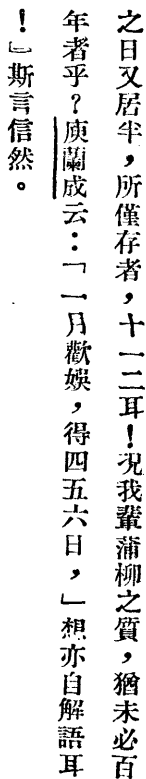 之日又居半，所僅存者，十一二耳！況我輩蒲柳之質，猶未必百
年者乎？庾蘭成云：「一月歡娛，得四五六日，」想亦自解語耳
！」斯言信然。